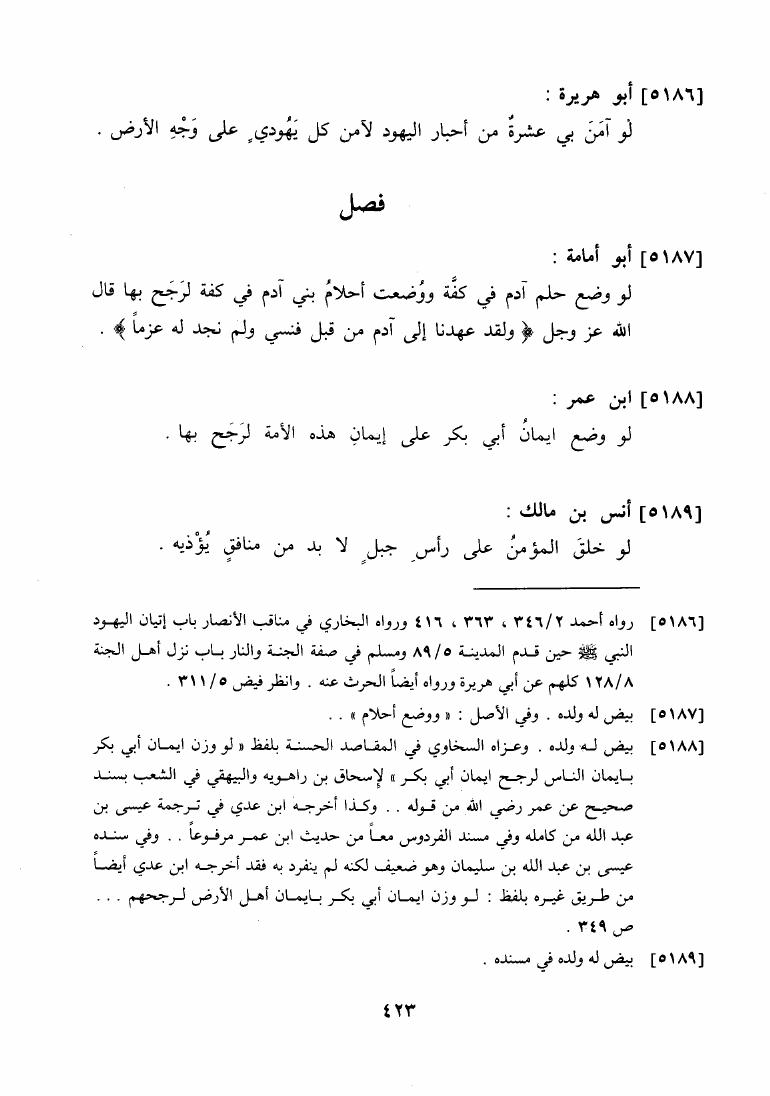 [٥١٨٦] أبو هريرة :
لَو آمَنَ بي عشرةٌ من أحبار اليهود لآمن كل يَهُودي ٍ على وَجْهِ الأرض .
فصل
[٥١٨٧] أبو أمامة :
لو وضع حلم آدم في كفَّة ووُضعت أحلامُ بني آدم في كفة لرَجَح بها قال
الله عز وجل ﴿ ولقد عهدنا إلى آدم من قبل فنسي ولم نجد له عزماً ﴾ .
[٥١٨٨] ابن عمر :
لو وضع ايمانُ أبي بكر على إيمانِ هذه الأمة لرَجَح بها .
[٥١٨٩] أنس بن مالك :
لو خلقَ المؤمنُ على رأسِ جبلٍ لا بد من منافقٍ يُؤْذيه .
[٥١٨٦] رواه أحمد ٣٤٦/٢ ، ٣٦٣ ، ٤١٦ ورواه البخاري في مناقب الأنصار باب إتيان اليهود
النبي ﷺ حين قدم المدينة ٨٩/٥ ومسلم في صفة الجنة والنار باب نزل أهل الجنة
١٢٨/٨ كلهم عن أبي هريرة ورواه أيضاً الحرث عنه . وانظر فيض ٣١١/٥ .
[٥١٨٧] بيض له ولده . وفي الأصل : « ووضع أحلام » . .
[٥١٨٨] بيض له ولده . وعزاه السخاوي في المقاصد الحسنة بلفظ « لو وزن ايمان أبي بكر
بايمان الناس لرجح ايمان أبي بكر » لإسحاق بن راهويه والبيهقي في الشعب بسند
صحيح عن عمر رضي الله من قوله . . وكذا أخرجه ابن عدي في ترجمة عيسى بن
عبد الله من كامله وفي مسند الفردوس معاً من حديث ابن عمر مرفوعاً . . وفي سنده
عيسى بن عبد الله بن سليمان وهو ضعيف لكنه لم ينفرد به فقد أخرجه ابن عدي أيضاً
من طريق غيره بلفظ : لو وزن ايمان أبي بكر بايمان أهل الأرض لرجحهم . . .
ص ٣٤٩ .
[٥١٨٩] بيض له ولده في مسنده .
٤٢٣